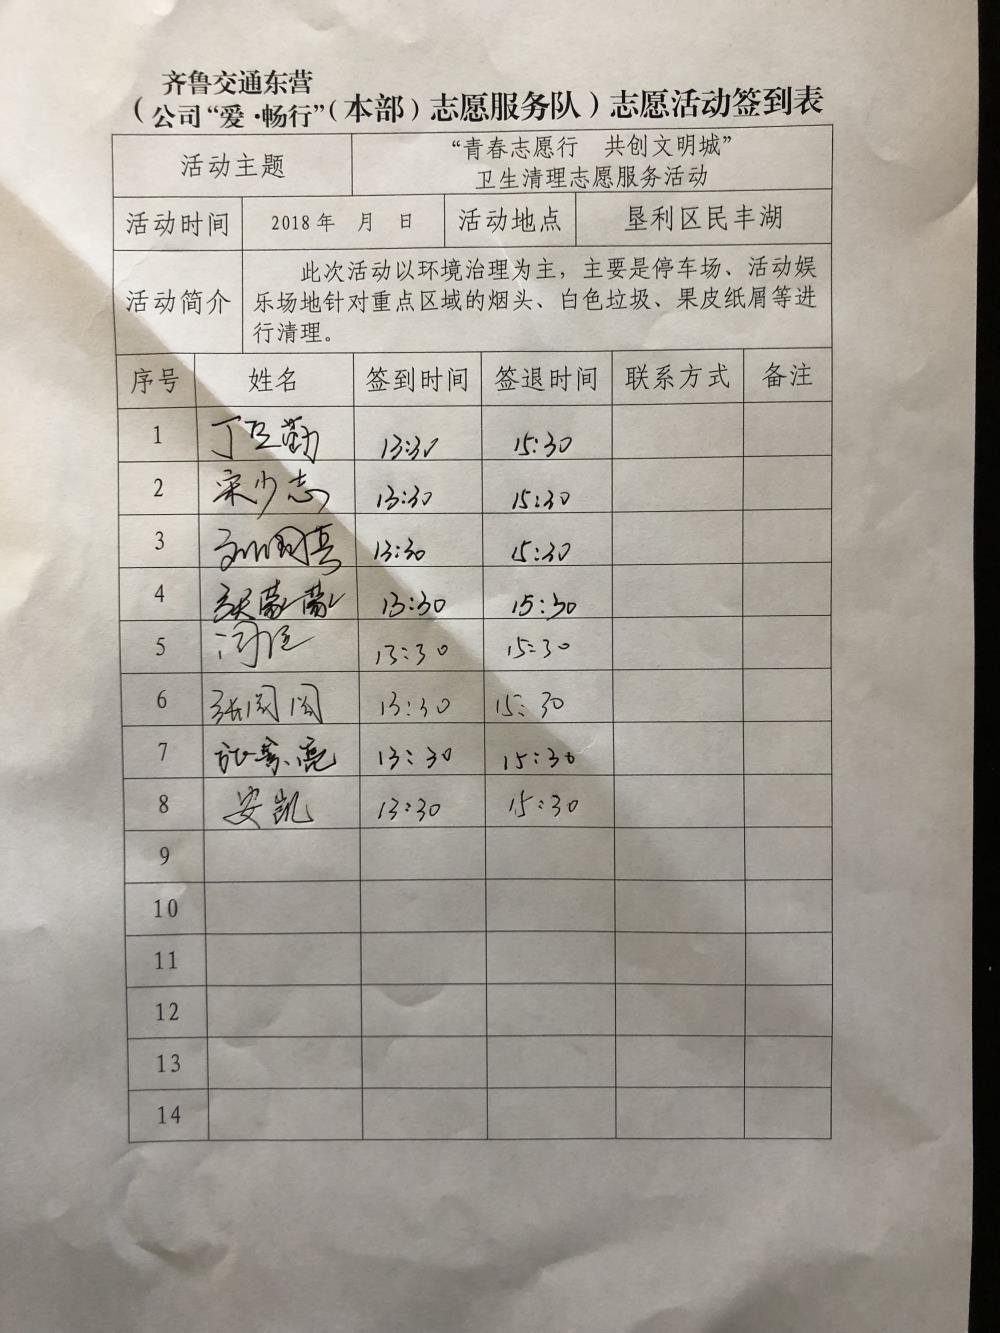 齐鲁交通东营
（公司“爱·畅行”（本部）志愿服务队）志愿活动签到表
活动主题
“青春志愿行 共创文明城”
卫生清理志愿服务活动
活动时间 2018年 月 日 活动地点 垦利区民丰湖
活动简介
此次活动以环境治理为主，主要是停车场、活动娱
乐场地针对重点区域的烟头、白色垃圾、果皮纸屑等进
行清理。
序号 姓名 签到时间 签退时间 联系方式 备注
1 13:30 15:30
2 宋少志 13:30 15:30
3 13:30 15:30
4 张蒙蒙 13:30 15:30
5 13:30 15:30
6 13:30 15:30
7 13:30 15:30
8 安凯 13:30 15:30
9
10
11
12
13
14